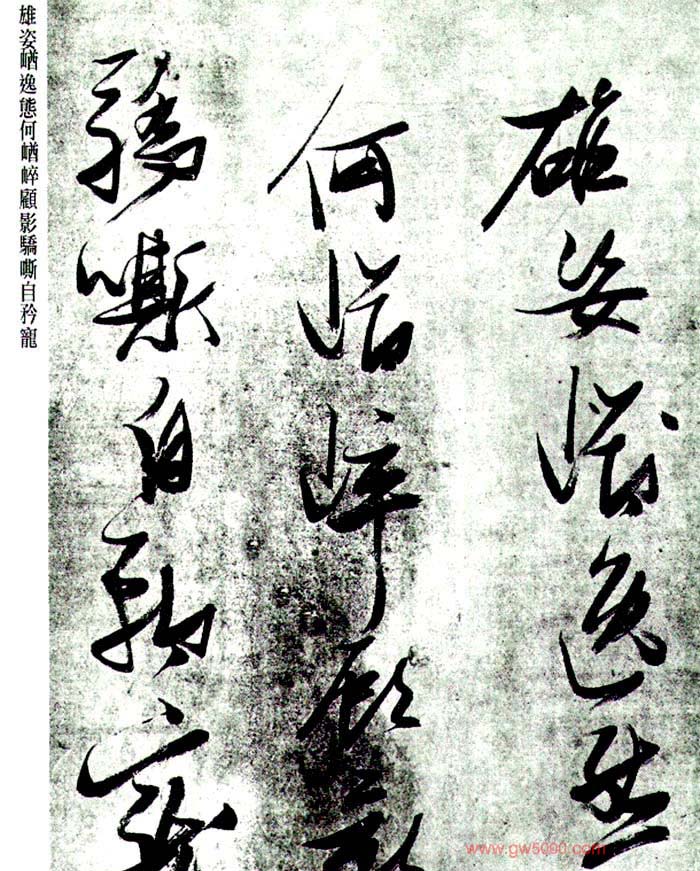 雄姿崷逸態
何崷崒顧影
驕嘶自矜寵
雄姿崷逸態何崷崒顧影驕嘶自矜寵
www.gw5000.com